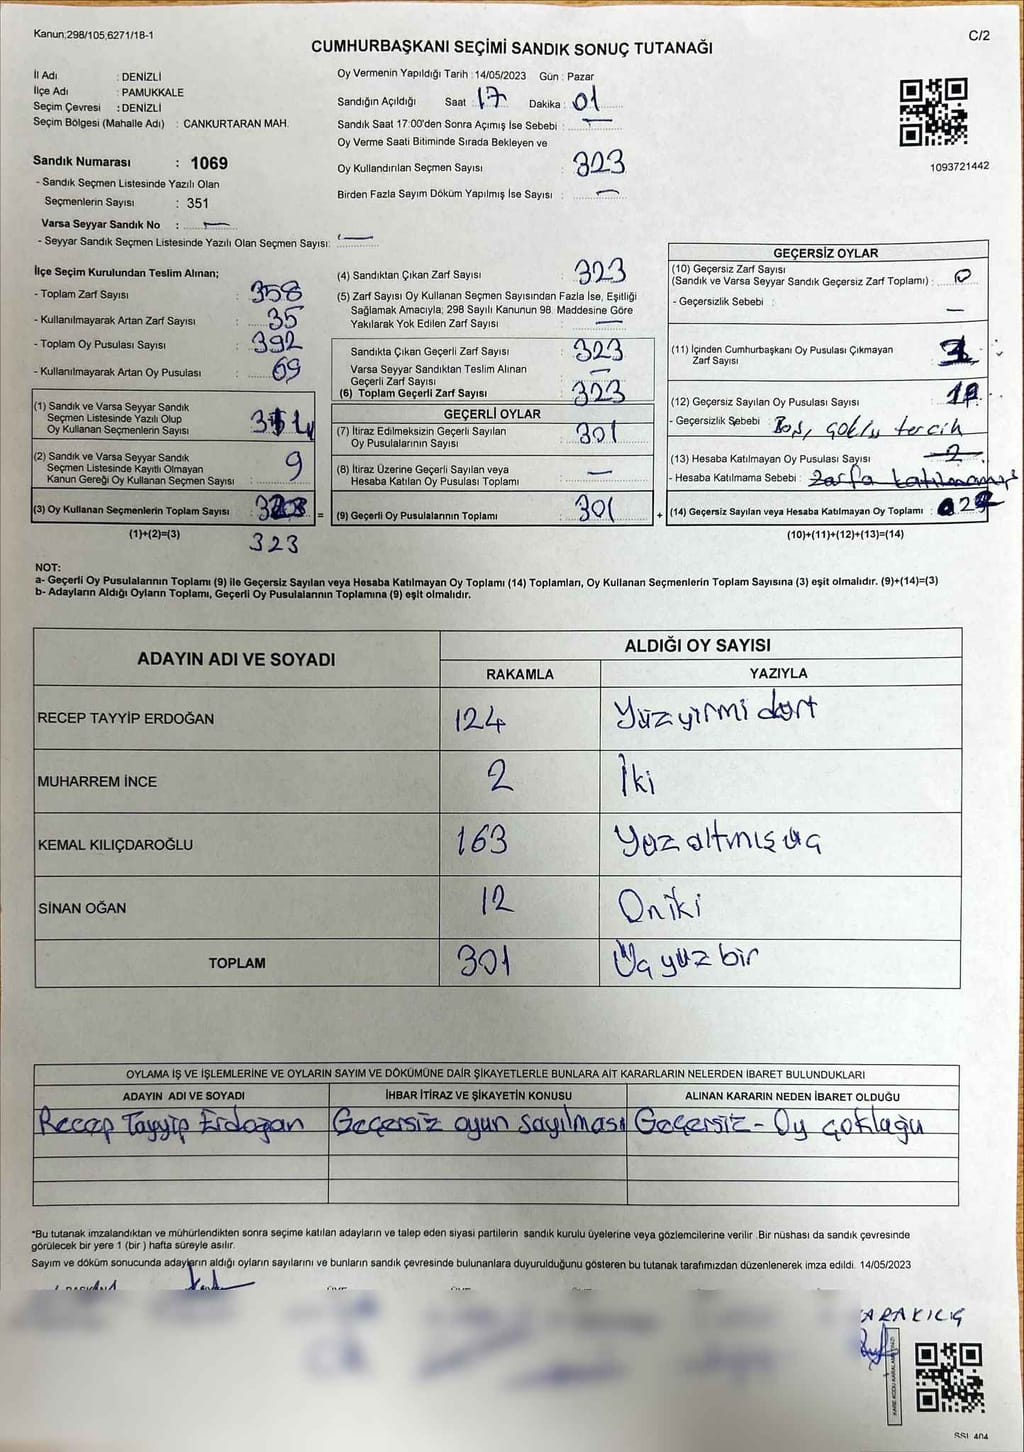 Kanun;298/105,6271/18-1
C/2
CUMHURBAŞKANI SEÇİMİ SANDIK SONUÇ TUTANAĞI
İl Adı : DENİZLİ
İlçe Adı : PAMUKKALE
Seçim Çevresi : DENİZLİ
Seçim Bölgesi (Mahalle Adı) : CANKURTARAN MAH.
Sandık Numarası : 1069
- Sandık Seçmen Listesinde Yazılı Olan
Seçmenlerin Sayısı : 351
Varsa Seyyar Sandık No : —
- Seyyar Sandık Seçmen Listesinde Yazılı Olan Seçmen Sayısı: —
Oy Vermenin Yapıldığı Tarih : 14/05/2023 Gün : Pazar
Sandığın Açıldığı Saat : 17 Dakika : 01
Sandık Saat 17:00'den Sonra Açımış İse Sebebi : —
Oy Verme Saati Bitiminde Sırada Bekleyen ve
Oy Kullandırılan Seçmen Sayısı : 323
Birden Fazla Sayım Döküm Yapılmış İse Sayısı : —
1093721442
İlçe Seçim Kurulundan Teslim Alınan;
- Toplam Zarf Sayısı : 358
- Kullanılmayarak Artan Zarf Sayısı : 35
- Toplam Oy Pusulası Sayısı : 392
- Kullanılmayarak Artan Oy Pusulası : 69
(1) Sandık ve Varsa Seyyar Sandık
Seçmen Listesinde Yazılı Olup
Oy Kullanan Seçmenlerin Sayısı : 314
(2) Sandık ve Varsa Seyyar Sandık
Seçmen Listesinde Kayıtlı Olmayan
Kanun Gereği Oy Kullanan Seçmen Sayısı : 9
(3) Oy Kullanan Seçmenlerin Toplam Sayısı :
(1)+(2)=(3)
323
(4) Sandıktan Çıkan Zarf Sayısı : 323
(5) Zarf Sayısı Oy Kullanan Seçmen Sayısından Fazla İse, Eşitliği
Sağlamak Amacıyla; 298 Sayılı Kanunun 98. Maddesine Göre
Yakılarak Yok Edilen Zarf Sayısı : —
Sandıkta Çıkan Geçerli Zarf Sayısı : 323
Varsa Seyyar Sandıktan Teslim Alınan
Geçerli Zarf Sayısı : —
(6) Toplam Geçerli Zarf Sayısı : 323
GEÇERLİ OYLAR
(7) İtiraz Edilmeksizin Geçerli Sayılan
Oy Pusulalarının Sayısı : 301
(8) İtiraz Üzerine Geçerli Sayılan veya
Hesaba Katılan Oy Pusulası Toplamı : —
= (9) Geçerli Oy Pusulalarının Toplamı : 301
GEÇERSİZ OYLAR
(10) Geçersiz Zarf Sayısı
(Sandık ve Varsa Seyyar Sandık Geçersiz Zarf Toplamı) : 0
- Geçersizlik Sebebi : —
(11) İçinden Cumhurbaşkanı Oy Pusulası Çıkmayan
Zarf Sayısı :
(12) Geçersiz Sayılan Oy Pusulası Sayısı :
- Geçersizlik Sebebi : Boş, çoklu tercih
(13) Hesaba Katılmayan Oy Pusulası Sayısı : 2
- Hesaba Katılmama Sebebi : Zarfa katılmamış
+ (14) Geçersiz Sayılan veya Hesaba Katılmayan Oy Toplamı :
(10)+(11)+(12)+(13)=(14)
NOT:
a- Geçerli Oy Pusulalarının Toplamı (9) ile Geçersiz Sayılan veya Hesaba Katılmayan Oy Toplamı (14) Toplamları, Oy Kullanan Seçmenlerin Toplam Sayısına (3) eşit olmalıdır. (9)+(14)=(3)
b- Adayların Aldığı Oyların Toplamı, Geçerli Oy Pusulalarının Toplamına (9) eşit olmalıdır.
ADAYIN ADI VE SOYADI ALDIĞI OY SAYISI
RAKAMLA YAZIYLA
RECEP TAYYİP ERDOĞAN 124 Yüz yirmi dört
MUHARREM İNCE 2 İki
KEMAL KILIÇDAROĞLU 163 Yüz altmış üç
SİNAN OĞAN 12 On iki
TOPLAM 301 Üç yüz bir
OYLAMA İŞ VE İŞLEMLERİNE VE OYLARIN SAYIM VE DÖKÜMÜNE DAİR ŞİKAYETLERLE BUNLARA AİT KARARLARIN NELERDEN İBARET BULUNDUKLARI
ADAYIN ADI VE SOYADI İHBAR İTİRAZ VE ŞİKAYETİN KONUSU ALINAN KARARIN NEDEN İBARET OLDUĞU
Recep Tayyip Erdoğan Geçersiz oyun sayılması Geçersiz - Oy çokluğu
*Bu tutanak imzalandıktan ve mühürlendikten sonra seçime katılan adayların ve talep eden siyasi partilerin sandık kurulu üyelerine veya gözlemcilerine verilir. Bir nüshası da sandık çevresinde
görülecek bir yere 1 (bir ) hafta süreyle asılır.
Sayım ve döküm sonucunda adayların aldığı oyların sayılarını ve bunların sandık çevresinde bulunanlara duyurulduğunu gösteren bu tutanak tarafımızdan düzenlenerek imza edildi. 14/05/2023
KARAKILIÇ